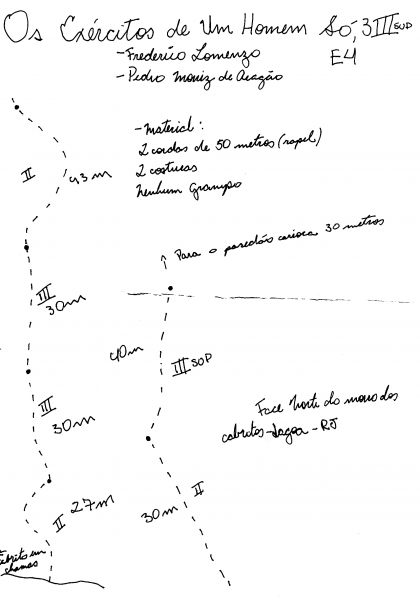 Os Exércitos de Um Homem Só, 3 III SUP
E4
-Frederico Lomenzo
-Pedro Moniz de Aragão
-Material:
2 cordas de 50 metros (rapel)
2 costuras
Nenhum Grampo
II
43m
↑ Para o paredão carioca 30 metros
III
30m
40m
III SOP
III
30m
Face Norte do morro dos
cabritos-Lagoa-RJ
II
27m
30m
II
Cabrito em
chamas